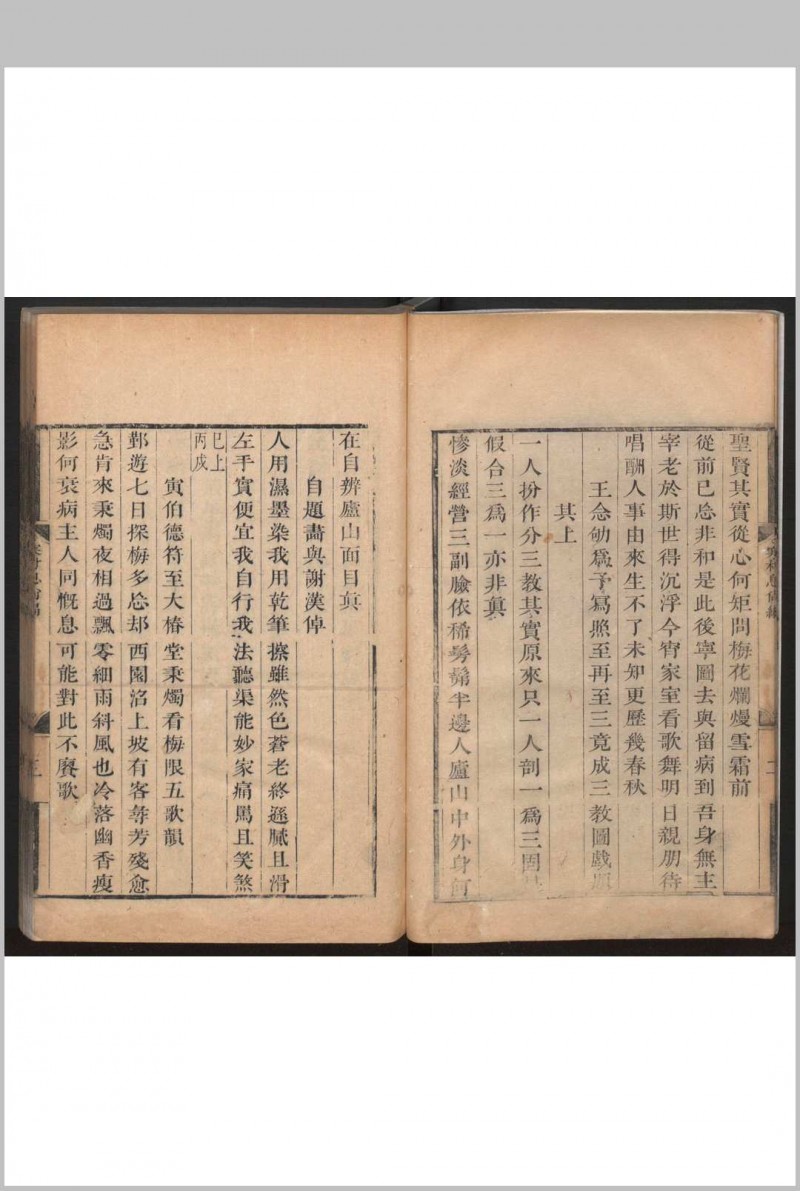 聖賢其實從心何矩問梅花爛熳雪霜前
從前已忩非和是此後寧圖去與留病到吾身無主
宰老於斯世得沉浮今宵家室看歌舞明日親朋待
唱酬人事由來生不了未知更歷幾春秋
王念劬爲予寫照至再至三竟成三教圖戲題
其上
一人扮作分三教其實原來只一人剖一爲三因
假合三爲一亦非眞
慘淡經營三副臉依稀髣髴半邊人廬山中外身何
在自辨廬山面目眞
自題畵與謝漢倬
人用濕墨染我用乾筆擦雖然色蒼老終遜膩且滑
左手實便宜我自行我法聽渠能妙家痛罵且笑煞
已上丙戌
寅伯德符至大椿堂秉燭看梅限五歌韻
鄞遊七日探梅多忩却西園浛上坡有客尋芳殘愈
急肯來秉燭夜相過飄零細雨斜風也冷落幽香瘦
影何衰病主人同慨息可能對此不賡歌